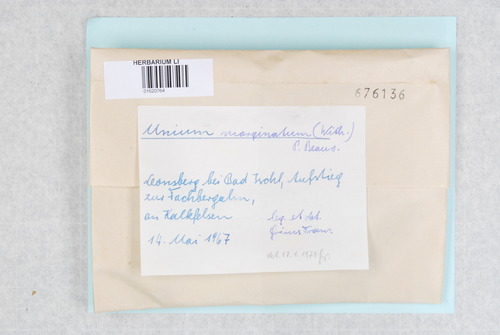 HERBARIUM LI
676136
Mnium marginatum (With.)
P. Beauv.
Leonsberg bei Bad Ischl, Aufstieg
zur Fachbergalm,
an Kalkfelsen
leg. et det.
14. Mai 1967